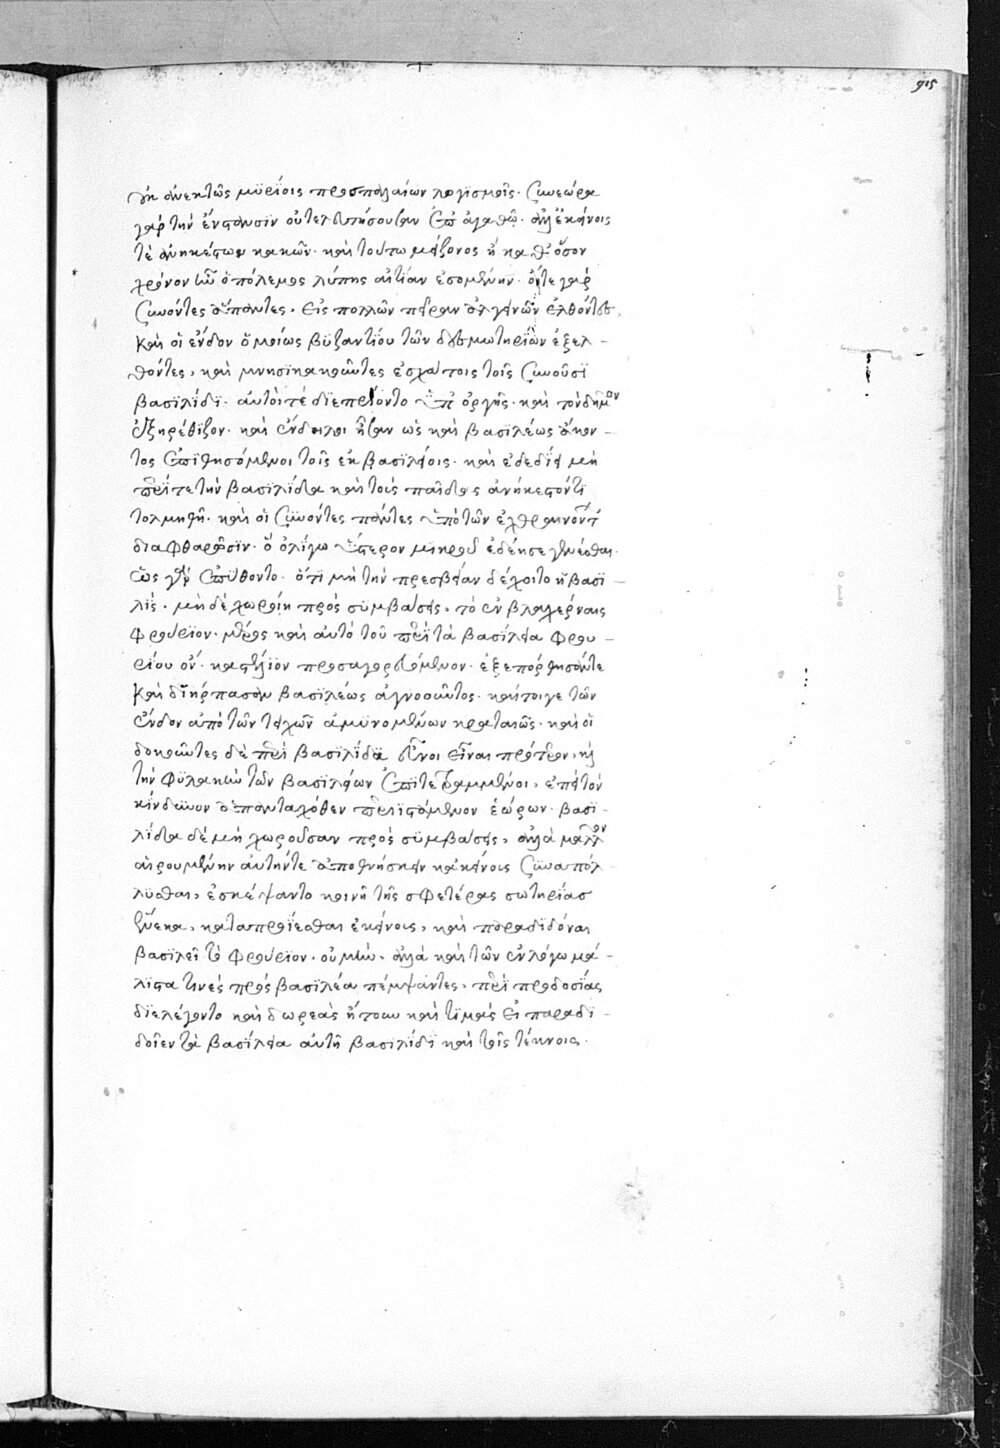 915
γὴ ἀνεκτῶς μϋρίοις προσπαλαίων λογϊσμοῖς· συνεώρα
γὰρ τὴν ἔνστασϊν οὐ τελευτήσουσαν ἐπ' ἀγαθῷ· ἀλλ' ἐκείνοις
τὲ ἀνηκέστων κακῶν· καὶ τούτω μείζονος ἢ καθ' ὅσον
χρόνον ἦν ὁ πόλεμος λύπης αἰτίαν ἐσομένην· οἵ τε γὰρ
συνόντες ἅπαντες, εἰς πολλῶν πεῖραν ἀλγεινῶν ἐλθόντες,
καὶ οἱ ἔνδον ὁμοίως βϋζαντίου τῶν δεσμωτηρίων ἐξελ-
θόντες, καὶ μνησϊκακοῦντες ἐσχάτοις τοῖς συνοῦσϊ
βασϊλίδϊ· αὐτοί τέ δϊεπρίοντο ὑπ' ὀργῆς· καὶ τὸν δῆμον
ἐξηρέθιζον· καὶ ἔνδηλοι ἦσαν ὡς καὶ βασϊλέως ἄκον-
τος ἐπϊθησόμενοι τοῖς ἐκ βασϊλείοις· καὶ ἐδεδίει μὴ
περί τε τὴν βασϊλίδα καὶ τοὺς παῖδας ἀνήκεστόν τϊ
τολμηθῇ· καὶ οἱ συνόντες πάντες ὑπὸ τῶν ἐχθραινόντων
διαφθαρῶσϊν· ὃ ὀλίγω ὕστερον μϊκροῦ ἐδέησε γενέσθαι.
ὡς γὰρ ἐπύθοντο· ὅτϊ μὴ τὴν πρεσβείαν δέχοιτο ἡ βασϊ-
λὶς· μὴ δὲ χωροίη πρὸς σϋμβάσεις, τὸ ἐν βλαχέρναις
φρούριον· μέρος καὶ αὐτὸ τοῦ περὶ τὰ βασίλεια φρου-
ρίου ὂν· καστέλϊον προσαγορευόμενον· ἐξεπόρθησάν τε
καὶ δϊήρπασαν βασϊλέως ἀγνοοῦντος· καίτοιγε τῶν
ἔνδον ἀπὸ τῶν τειχῶν ἀμϋνομένων κραταιῶς· καὶ οἱ
δοκοῦντες δὲ περὶ βασιλίδα εὖνοι εἶναι πρότερον, καὶ
τὴν φϋλακὴν τῶν βασϊλείων ἐπϊτετραμμένοι, ἐπεὶ τὸν
κίνδϋνον ἁπανταχόθεν περιϊστάμενον ἑώρων· βασϊ-
λίδα δὲ μὴ χωροῦσαν πρὸς σϋμβάσεις, ἀλλὰ μᾶλλον
αἱρουμένην αὐτήν τε ἀποθνήσκειν κἀκείνοις συναπόλ-
λϋσθαι, ἐσκέψαντο κοινῇ τῆς σφετέρας σωτηρίασ
ἕνεκα, καταπροΐεσθαι ἐκείνοις, καὶ παραδϊδόναι
βασϊλεῖ τὸ φρούριον· οὐ μὴν, ἀλλὰ καὶ τῶν ἐν λόγω μά-
λϊστα τινὲς πρὸς βασϊλέα πέμψαντες, περὶ προδοσίας
δϊελέγοντο καὶ δωρεὰς ᾔτουν καὶ τϊμὰς εἰ παραδϊ-
δοῖεν τὰ βασίλεια αὐτῇ βασϊλίδϊ καὶ τοῖς τέκνοις·